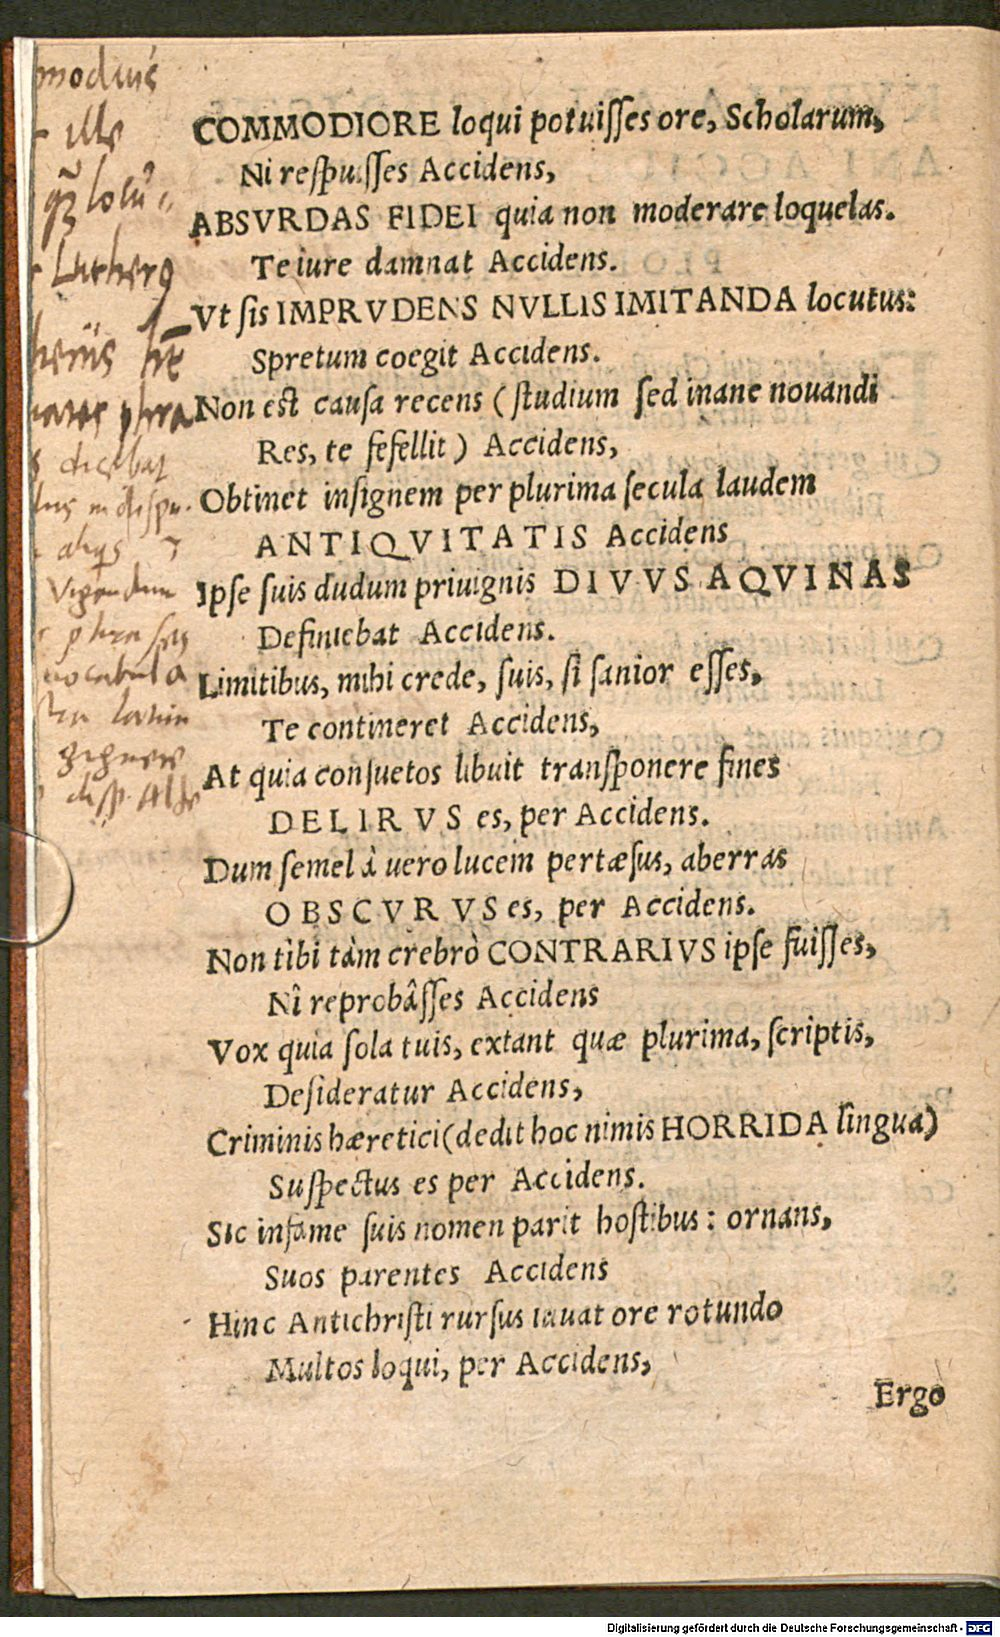 modius
ille
Luthero
phra
dicebat
vocabula
COMMODIORE loqui potuiſſes ore, Scholarum,
Ni reſpuiſſes Accidens,
ABSVRDAS FIDEI quia non moderare loquelas.
Te iure damnat Accidens.
Vt ſis IMPRVDENS NVLLIS IMITANDA locutus:
Spretum coegit Accidens.
Non est cauſa recens (ſtudium ſed inane nouandi
Res, te fefellit) Accidens,
Obtinet inſignem per plurima ſecula laudem
ANTIQVITATIS Accidens
Ipſe ſuis dudum priuignis DIVVS AQVINAS
Definiebat Accidens.
Limitibus, mihi crede, ſuis, ſi ſanior eſſes,
Te contineret Accidens,
At quia conſuetos libuit tranſponere fines
DELIRVS es, per Accidens.
Dum ſemel à vero lucem pertæſus, aberras
OBSCVRVS es, per Accidens.
Non tìbi tàm crebrò CONTRARIVS ipſe fuiſſes,
Nî reprobâſſes Accidens
Vox quia ſola tuis, extant quæ plurima, ſcriptis,
Deſideratur Accidens,
Criminis hæretici (dedit hoc nimis HORRIDA lingua)
Suſpectus es per Accidens.
Sic infame ſuis nomen parit hoſtibus: ornans,
Suos parentes Accidens
Hinc Antichriſti rurſus iuuat ore rotundo
Multos loqui, per Accidens,
Ergo
Digitalisierung gefördert durch die Deutsche Forschungsgemeinschaft - DFG